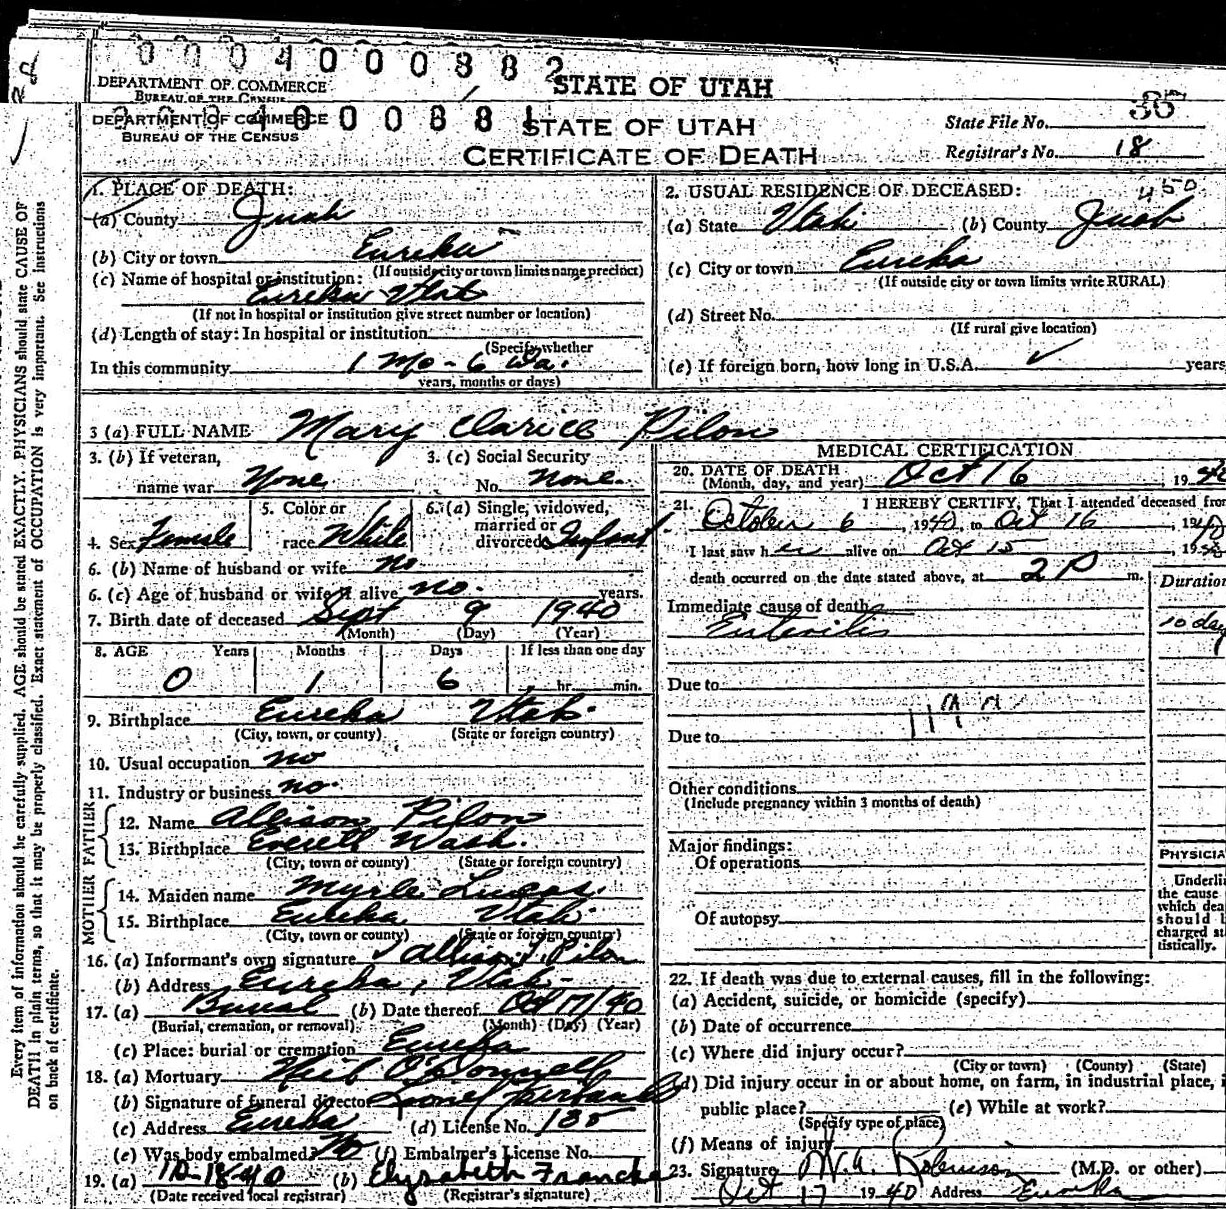 0 0 0 4 0 0 0 8 8 2
DEPARTMENT OF COMMERCE
BUREAU OF THE CENSUS
STATE OF UTAH
DEPARTMENT OF COMMERCE
BUREAU OF THE CENSUS
0 0 8 8 1
STATE OF UTAH
CERTIFICATE OF DEATH
State File No. 36
Registrar's No. 18
Every item of information should be carefully supplied. AGE should be stated EXACTLY. PHYSICIANS should state CAUSE OF
DEATH in plain terms, so that it may be properly classified. Exact statement of OCCUPATION is very important. See instructions
on back of certificate.
1. PLACE OF DEATH:
(a) County Juab
(b) City or town Eureka
(If outside city or town limits name precinct)
(c) Name of hospital or institution:
Eureka Utah
(If not in hospital or institution give street number or location)
(d) Length of stay: In hospital or institution
(Specify whether
In this community 1 Mo - 6 Da.
years, months or days)
2. USUAL RESIDENCE OF DECEASED: 450
(a) State Utah (b) County Juab
(c) City or town Eureka
(If outside city or town limits write RURAL)
(d) Street No.
(If rural give location)
(e) If foreign born, how long in U.S.A. ✓ years
3 (a) FULL NAME Mary Clarice Pilon
3. (b) If veteran,
name war None
3. (c) Social Security
No. None.
4. Sex Female
5. Color or
race White
6. (a) Single, widowed,
married or
divorced Infant.
6. (b) Name of husband or wife no.
6. (c) Age of husband or wife if alive no. years.
7. Birth date of deceased Sept 9 1940
(Month) (Day) (Year)
8. AGE Years Months Days If less than one day
0 1 6 hr. min.
9. Birthplace Eureka Utah.
(City, town, or county) (State or foreign country)
10. Usual occupation no
11. Industry or business no.
FATHER
12. Name Allison Pilon
13. Birthplace Everett Wash.
(City, town or county) (State or foreign country)
MOTHER
14. Maiden name Myrle Lucas.
15. Birthplace Eureka Utah.
(City, town or county) (State or foreign country)
16. (a) Informant's own signature Allison J. Pilon
(b) Address Eureka, Utah.
17. (a) Burial (b) Date thereof Oct 17/40
(Burial, cremation, or removal) (Month) (Day) (Year)
(c) Place: burial or cremation Eureka
18. (a) Mortuary Neil O'Donnell
(b) Signature of funeral director Lionel
(c) Address Eureka (d) License No. 135
(e) Was body embalmed? No (f) Embalmer's License No.
19. (a) 10-18-40 (b) Elizabeth Francke
(Date received local registrar) (Registrar's signature)
MEDICAL CERTIFICATION
20. DATE OF DEATH Oct 16 1940
(Month, day, and year)
21. I HEREBY CERTIFY, That I attended deceased from
October 6, 1940, to Oct 16, 1940
I last saw her alive on Oct 15, 1940
death occurred on the date stated above, at 2 P m.
Duration
Immediate cause of death
Enteritis 10 day
Due to
119
Due to
Other conditions
(Include pregnancy within 3 months of death)
Major findings:
Of operations
Of autopsy
PHYSICIA
Underli
the cause
which dea
should b
charged st
tistically.
22. If death was due to external causes, fill in the following:
(a) Accident, suicide, or homicide (specify)
(b) Date of occurrence
(c) Where did injury occur?
(City or town) (County) (State)
(d) Did injury occur in or about home, on farm, in industrial place, i
public place? (e) While at work?
(Specify type of place)
(f) Means of injury
23. Signature W.A. Robinson (M.D. or other)
Oct 17 1940 Address Eureka